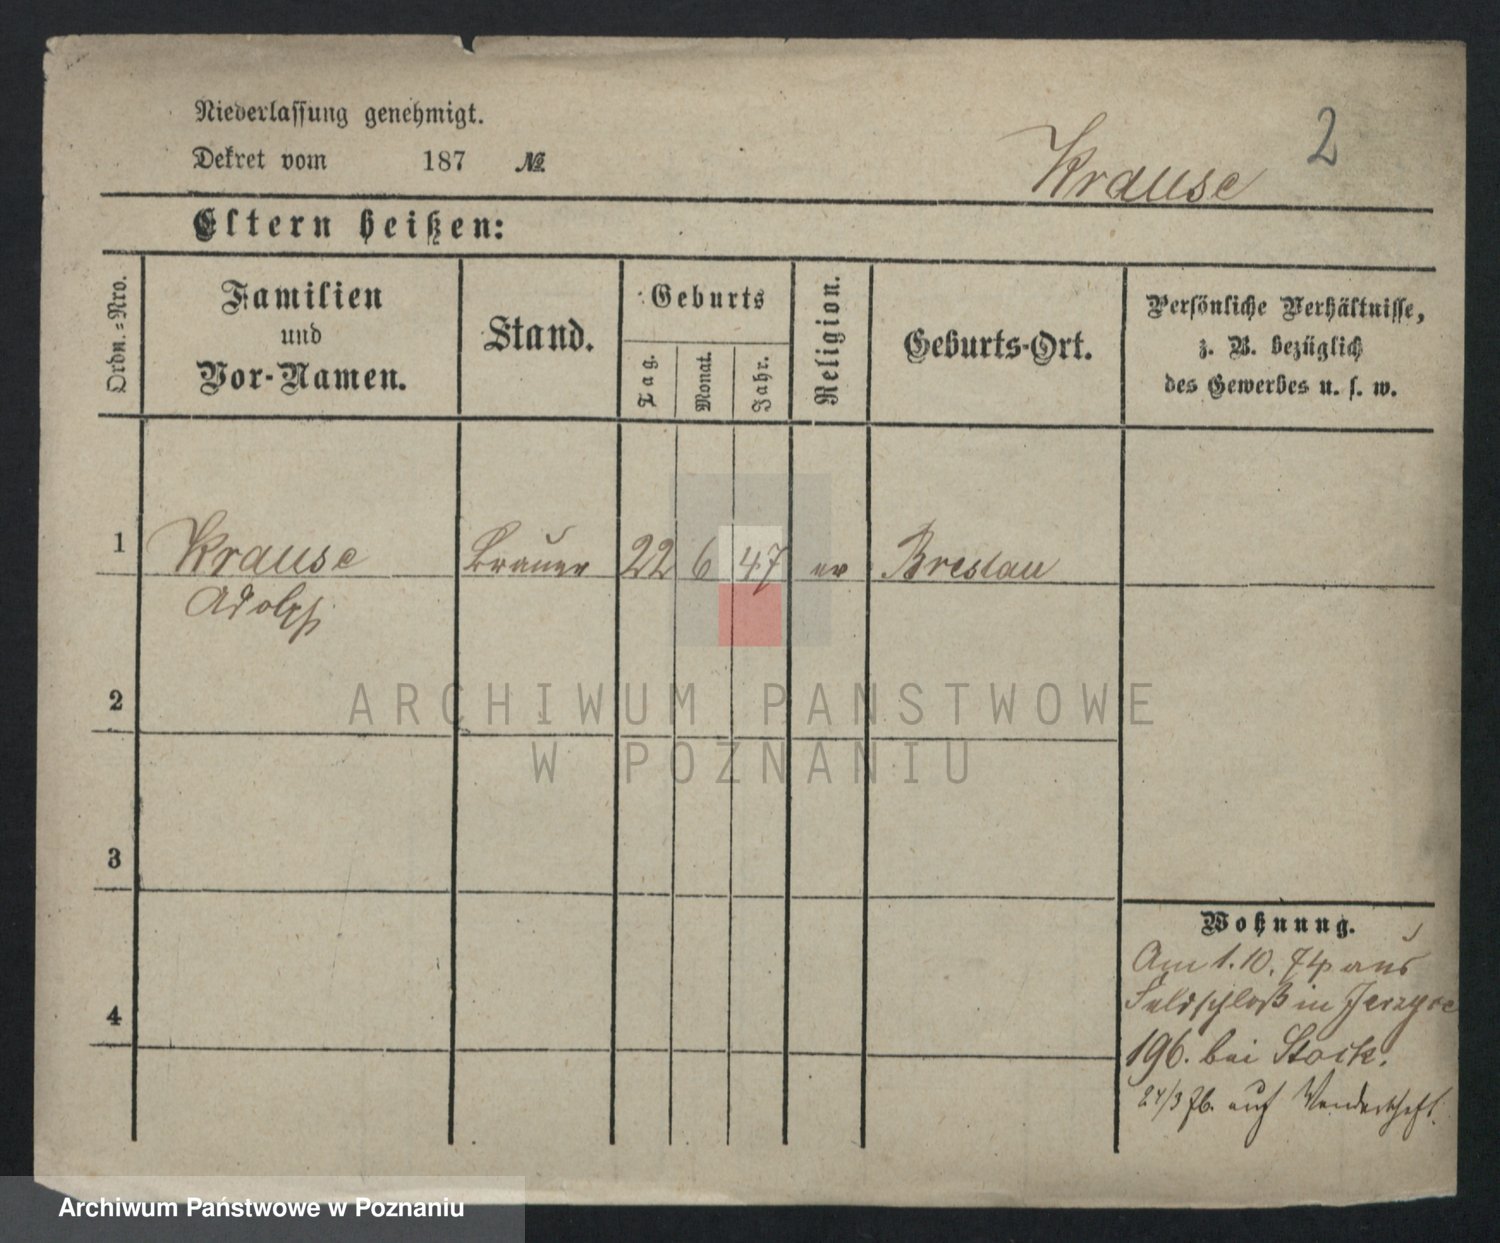 Niederlassung genehmigt.
Dekret vom 187 №
Krause 2
Eltern heißen:
Ordn.=Nro.
Familien
und
Vor-Namen.
Stand.
Geburts
Tag.
Monat.
Jahr.
Religion.
Geburts-Ort.
Persönliche Verhältnisse,
z. B. bezüglich
des Gewerbes u. s. w.
1 Krause Brauer 22 6 47 ev Breslau
Adolph
2
3
4
Wohnung.
Am 1. 10. 74 aus
Feldschloß in Jerzyce
196. bei Stock.
24/3 76. auf Wanderschaft.
ARCHIWUM PAŃSTWOWE
W POZNANIU
Archiwum Państwowe w Poznaniu